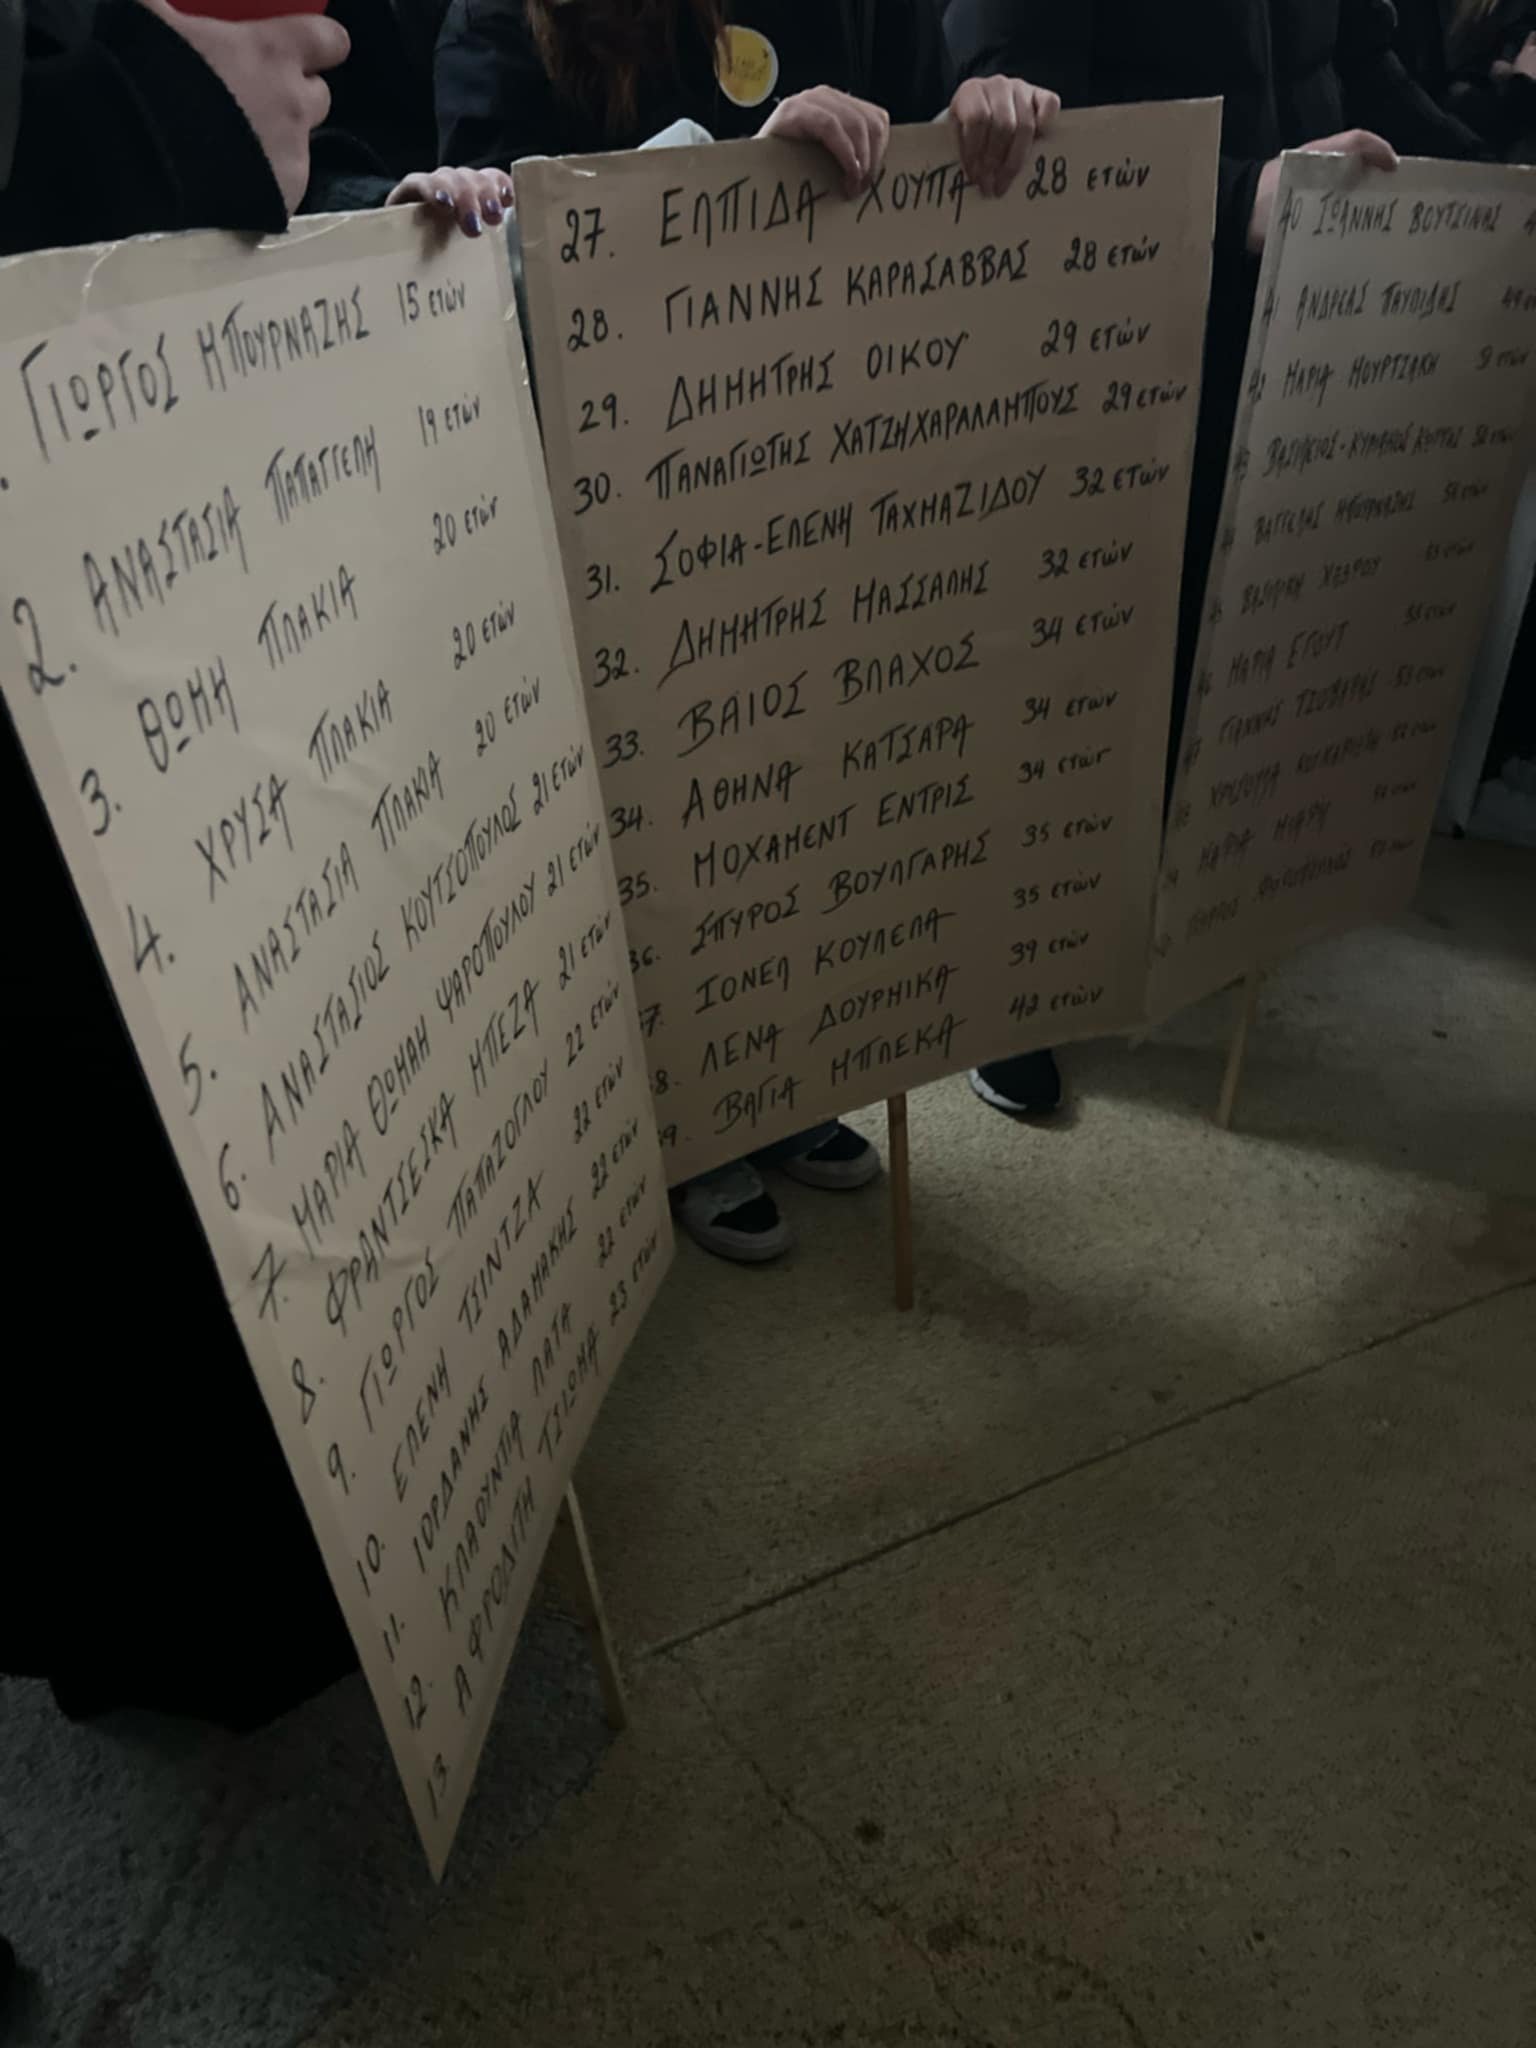 ΓΙΩΡΓΟΣ ΜΠΟΥΡΝΑΖΗΣ 15 ετών
2. ΑΝΑΣΤΑΣΙΑ ΠΑΠΑΓΓΕΛΗ 19 ετών
3. ΘΩΜΗ ΠΛΑΚΙΑ 20 ετών
4. ΧΡΥΣΑ ΠΛΑΚΙΑ 20 ετών
5. ΑΝΑΣΤΑΣΙΑ ΠΛΑΚΙΑ 20 ετών
6. ΑΝΑΣΤΑΣΙΟΣ ΚΟΥΤΣΟΠΟΥΛΟΣ 21 ετών
7. ΜΑΡΙΑ ΘΩΜΑΗ ΨΑΡΟΠΟΥΛΟΥ 21 ετών
8. ΦΡΑΝΤΣΕΣΚΑ ΜΠΕΖΑ 21 ετών
9. ΓΙΩΡΓΟΣ ΠΑΠΑΖΟΓΛΟΥ 22 ετών
10. ΕΛΕΝΗ ΤΣΙΝΤΖΑ 22 ετών
11. ΙΟΡΔΑΝΗΣ ΑΔΑΜΑΚΗΣ 22 ετών
12. ΚΛΑΟΥΝΤΙΑ ΛΑΤΑ 22 ετών
13. ΑΦΡΟΔΙΤΗ ΤΣΙΩΜΑ 23 ετών
27. ΕΛΠΙΔΑ ΧΟΥΠΑ 28 ετών
28. ΓΙΑΝΝΗΣ ΚΑΡΑΣΑΒΒΑΣ 28 ετών
29. ΔΗΜΗΤΡΗΣ ΟΙΚΟΥ 29 ετών
30. ΠΑΝΑΓΙΩΤΗΣ ΧΑΤΖΗΧΑΡΑΛΑΜΠΟΥΣ 29 ετών
31. ΣΟΦΙΑ-ΕΛΕΝΗ ΤΑΧΜΑΖΙΔΟΥ 32 ετών
32. ΔΗΜΗΤΡΗΣ ΜΑΣΣΑΛΗΣ 32 ετών
33. ΒΑΙΟΣ ΒΛΑΧΟΣ 34 ετών
34. ΑΘΗΝΑ ΚΑΤΣΑΡΑ 34 ετών
35. ΜΟΧΑΜΕΝΤ ΕΝΤΡΙΣ 34 ετών
36. ΣΠΥΡΟΣ ΒΟΥΛΓΑΡΗΣ 35 ετών
7. ΙΟΝΕΛ ΚΟΥΛΕΛΑ 35 ετών
8. ΛΕΝΑ ΔΟΥΡΜΙΚΑ 39 ετών
9. ΒΑΓΙΑ ΜΠΛΕΚΑ 42 ετών
40 ΙΩΑΝΝΗΣ ΒΟΥΤΣΙΝΑΣ
41 ΑΝΔΡΕΑΣ ΠΑΥΛΙΔΗΣ
42 ΜΑΡΙΑ ΜΟΥΡΤΖΑΚΗ
ΒΑΓΓΕΛΗΣ ΜΠΟΥΡΝΑΖΗΣ
ΒΑΣΙΛΙΚΗ ΧΛΩΡΟΥ
ΜΑΡΙΑ ΕΓΟΥΤ
ΓΙΑΝΝΗΣ ΤΖΟΒΑΡΑΣ
ΜΑΡΙΑ